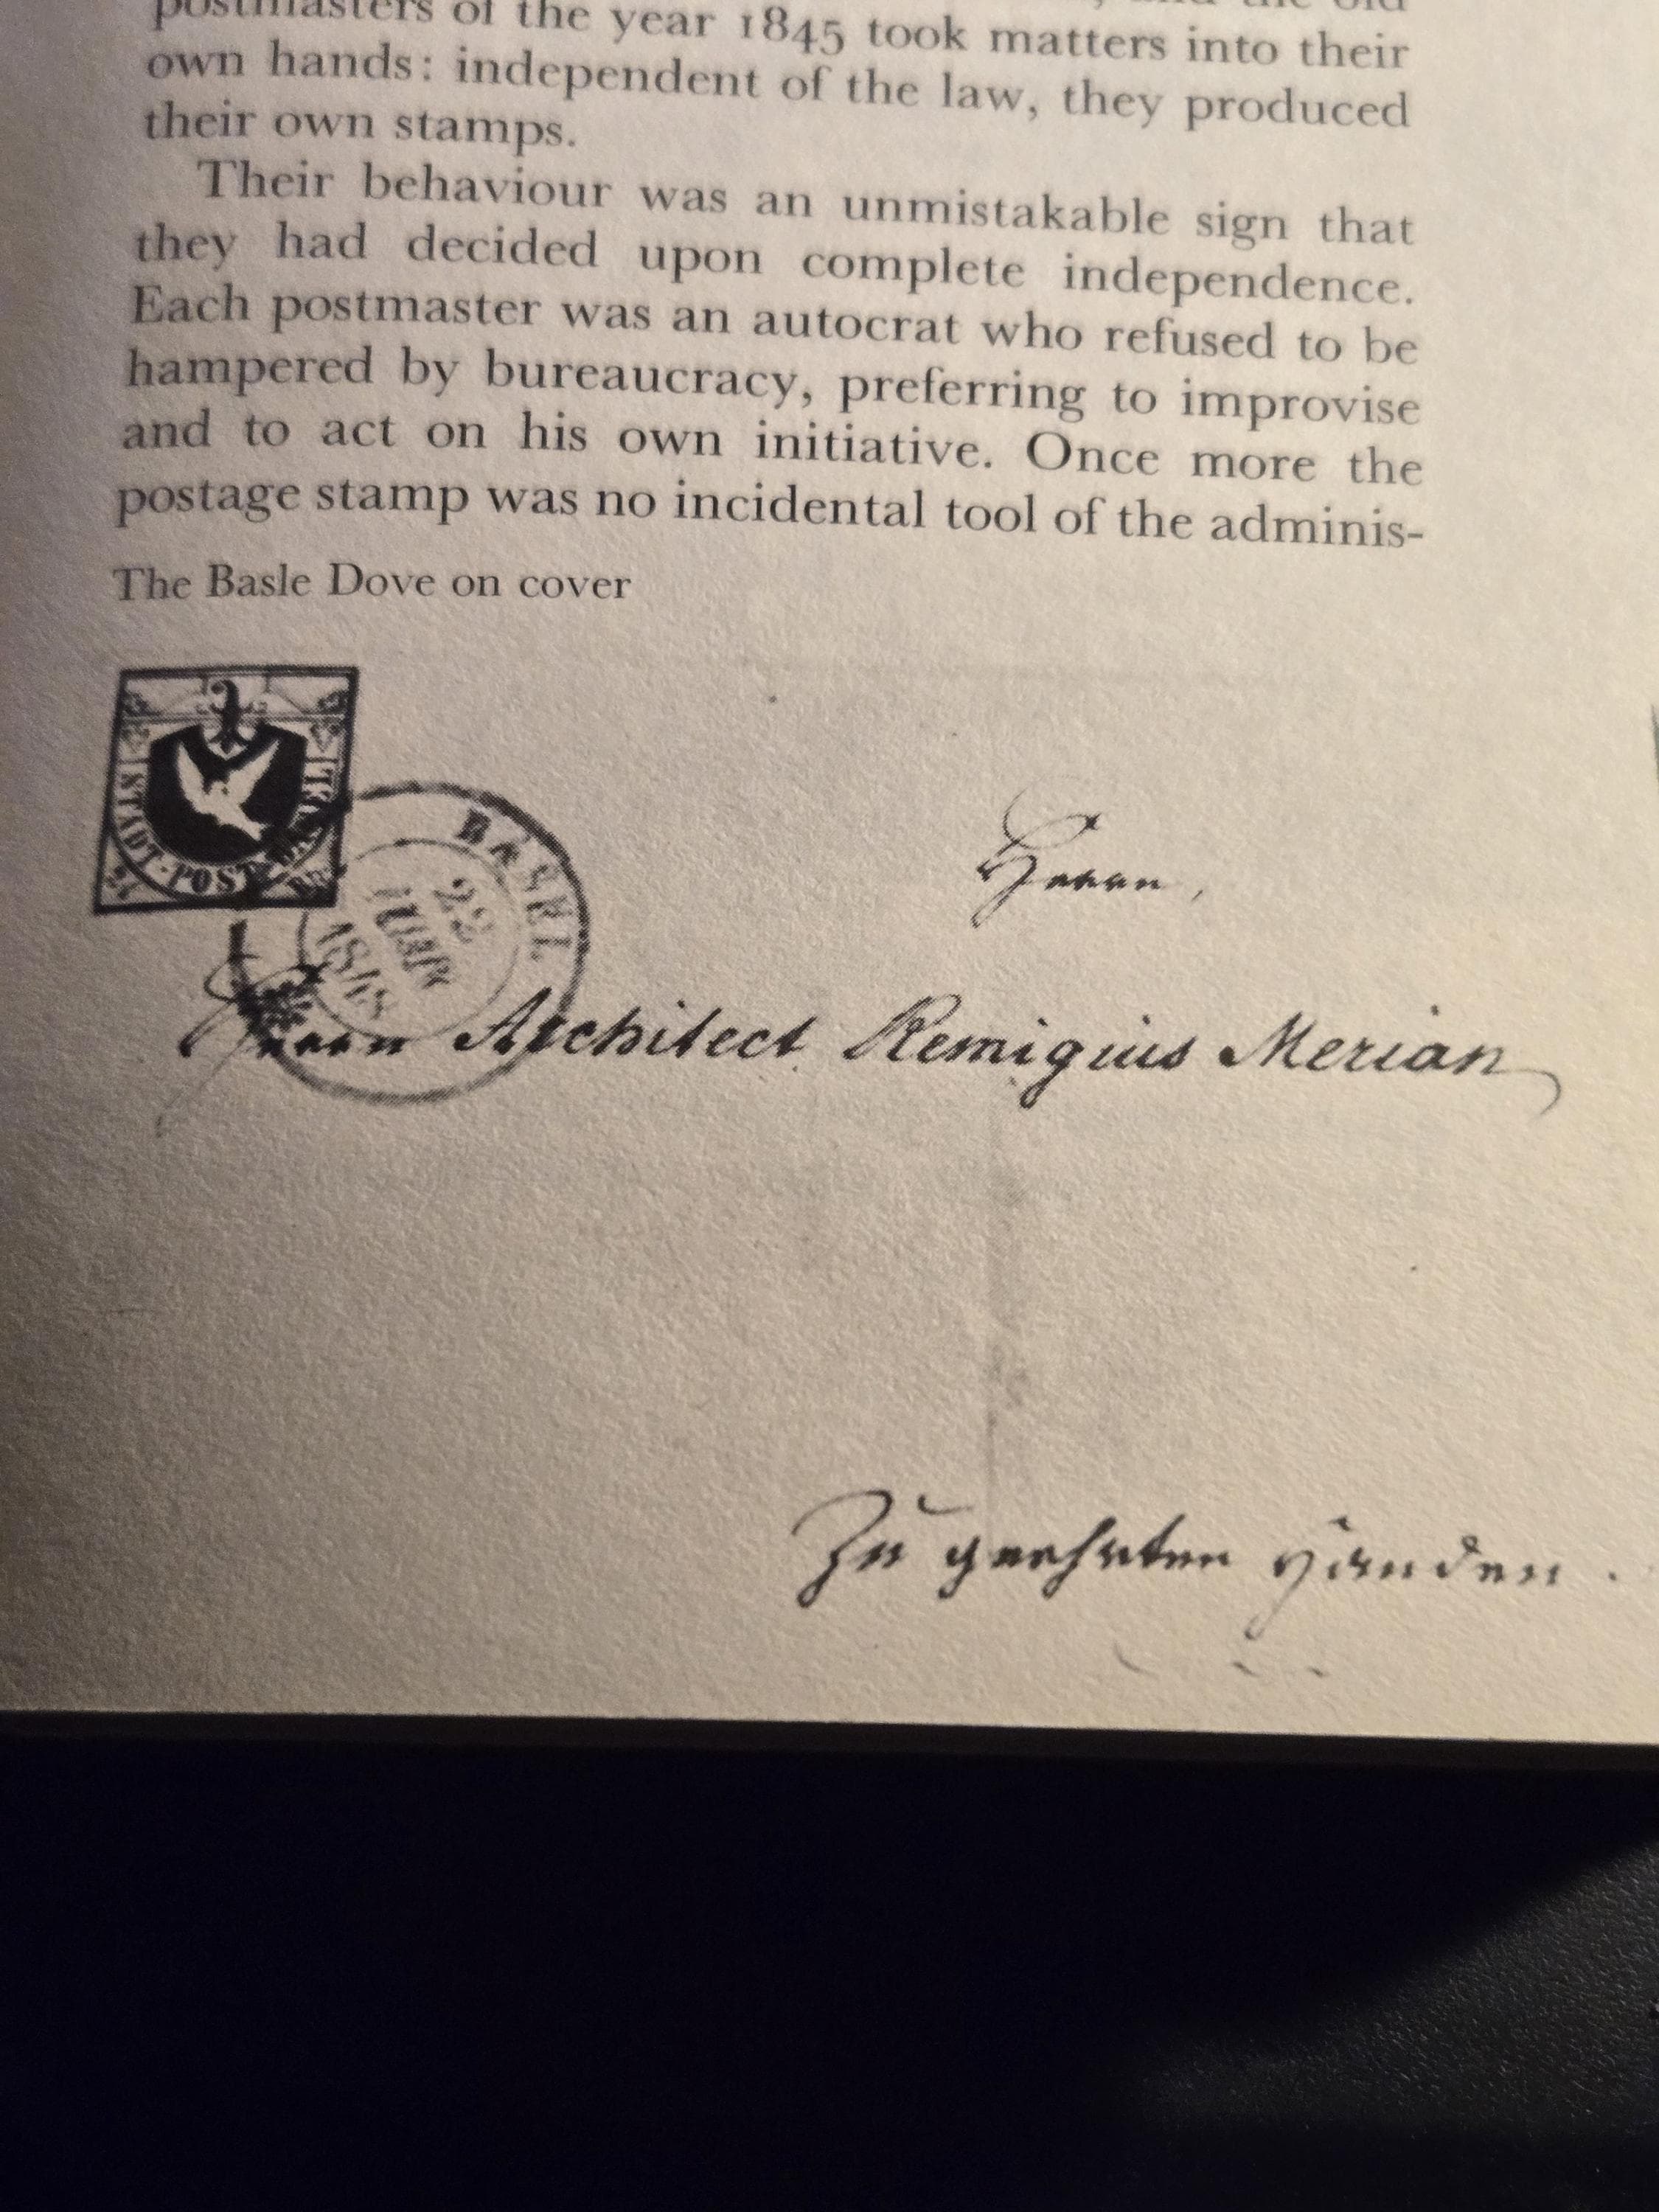 postmasters of the year 1845 took matters into their
own hands: independent of the law, they produced
their own stamps.
Their behaviour was an unmistakable sign that
they had decided upon complete independence.
Each postmaster was an autocrat who refused to be
hampered by bureaucracy, preferring to improvise
and to act on his own initiative. Once more the
postage stamp was no incidental tool of the adminis-
The Basle Dove on cover
STADT-POST-BASEL
BASEL
Herrn,
Herrn Architect Remigius Merian
Zu geehrten Handen.